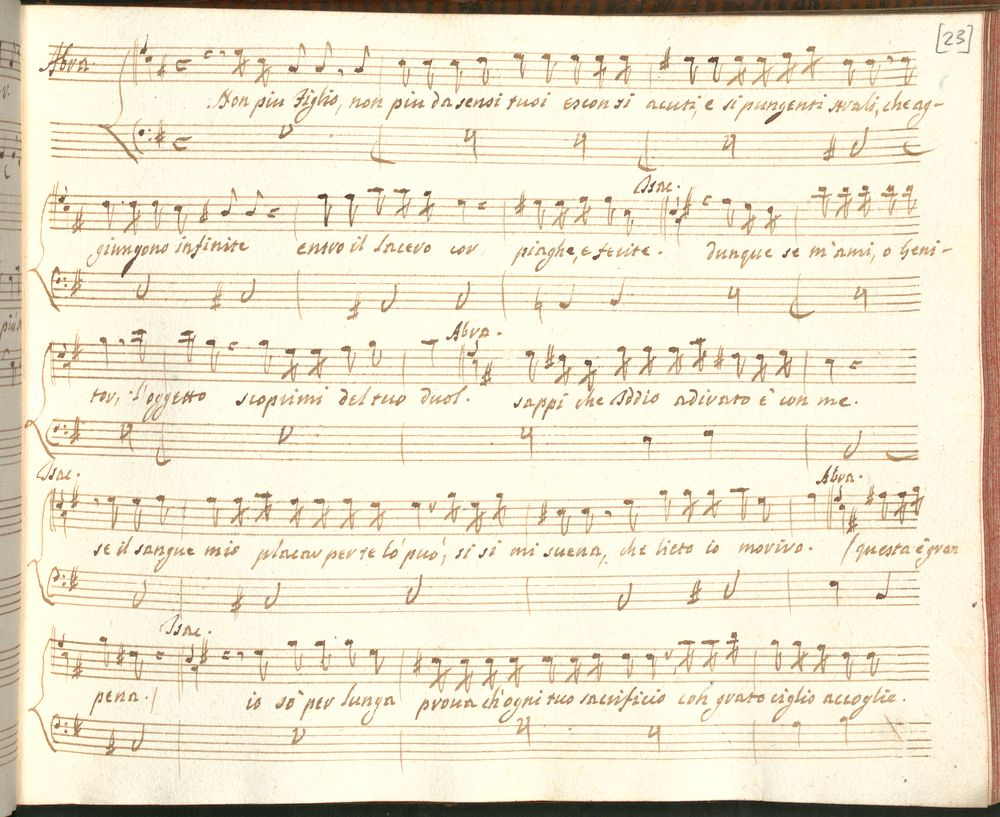 [23]
Abra.
Non piu Figlio, non piu da sensi tuoi escon si acuti, e si pungenti strali, che ag-
Isac.
giungono infinite entro il lacero cor piaghe, e ferite. dunque se m'ami, o Geni-
Abra.
tor, l'oggetto scoprimi del tuo duol. sappi che Iddio adirato è con me.
Isac. Abra.
se il sangue mio placar per te lo può, si si mi suena, che lieto io moriro. (questa è gran
Isac.
pena.) io sò per lunga proua ch'ogni tuo sacrificio con grato ciglio accoglie.